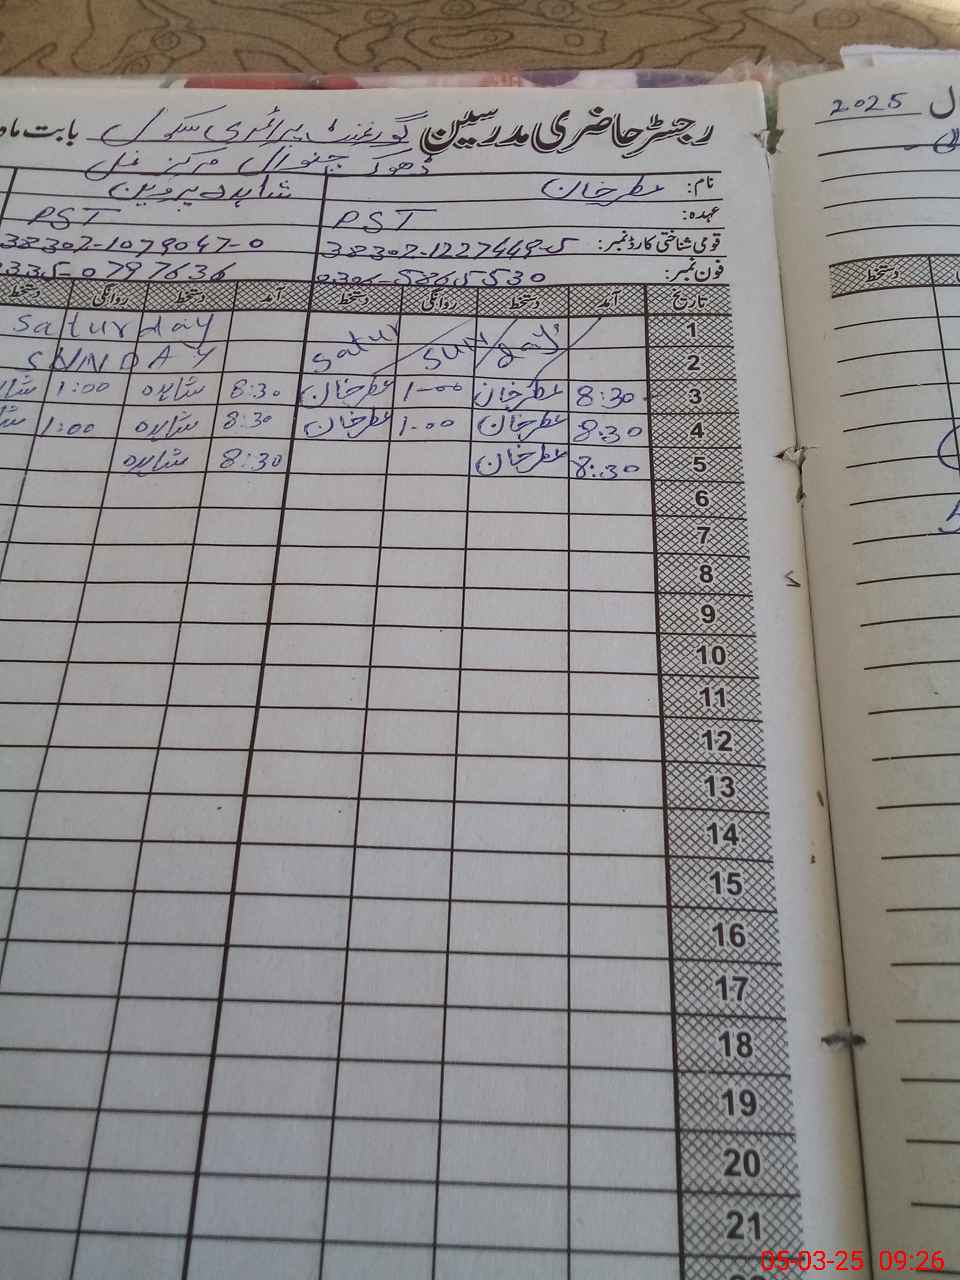 رجسٹر حاضری مدرسین گورنمنٹ پرائمری سکول بابت ماہ
ڈھوک
نام: عطر خان شاہدہ پروین
عہدہ: PST PST
قومی شناختی کارڈ نمبر: 38302-1227449-5 38302-1079047-0
فون نمبر: 0306-5865530 0335-0797636
تاریخ آمد دستخط روانگی دستخط آمد دستخط روانگی دستخط
1 Saturday Saturday
2 Sunday SUNDAY
3 8:30 عطر خان 1-00 عطر خان 8:30 شاہدہ 1:00
4 8:30 عطر خان 1-00 عطر خان 8:30 شاہدہ 1:00
5 8:30 عطر خان 8:30 شاہدہ
6
7
8
9
10
11
12
13
14
15
16
17
18
19
20
21
2025
دستخط
05-03-25 09:26